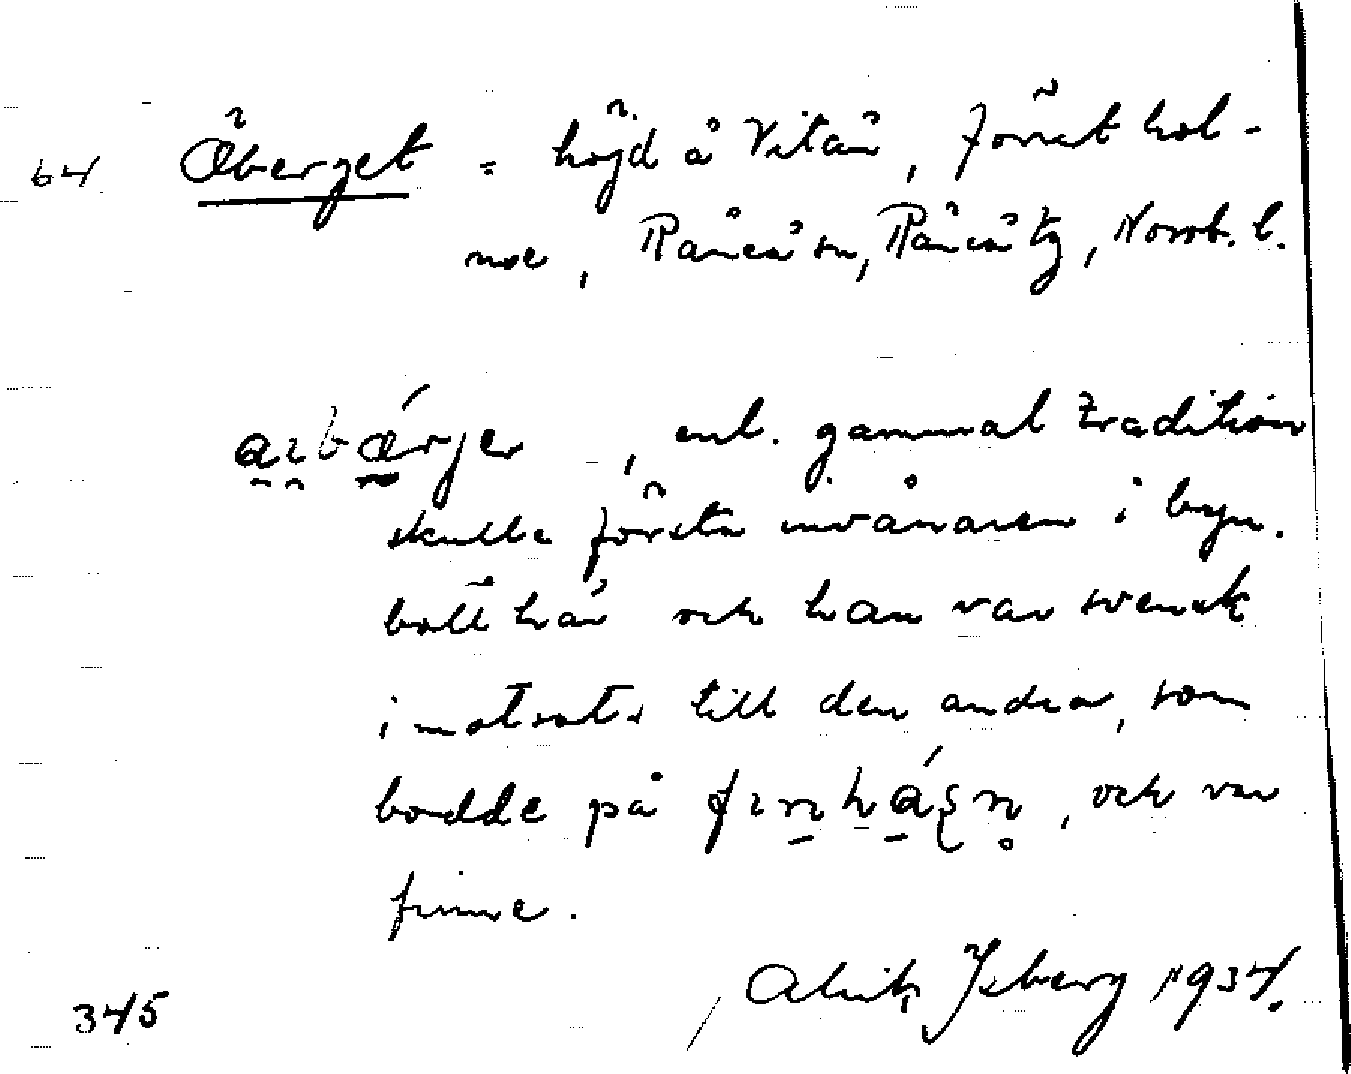 64 Åberget = höjd å Vitån, förut hol-
me, Råneå sn, Råneå tg, Norrb. l.
, enl. gammal tradition
skulle första invånaren i byn.
bott här och han var svensk
i motsats till den andra, som
bodde på , och var
finne.
345 Alrik Isberg 1934.